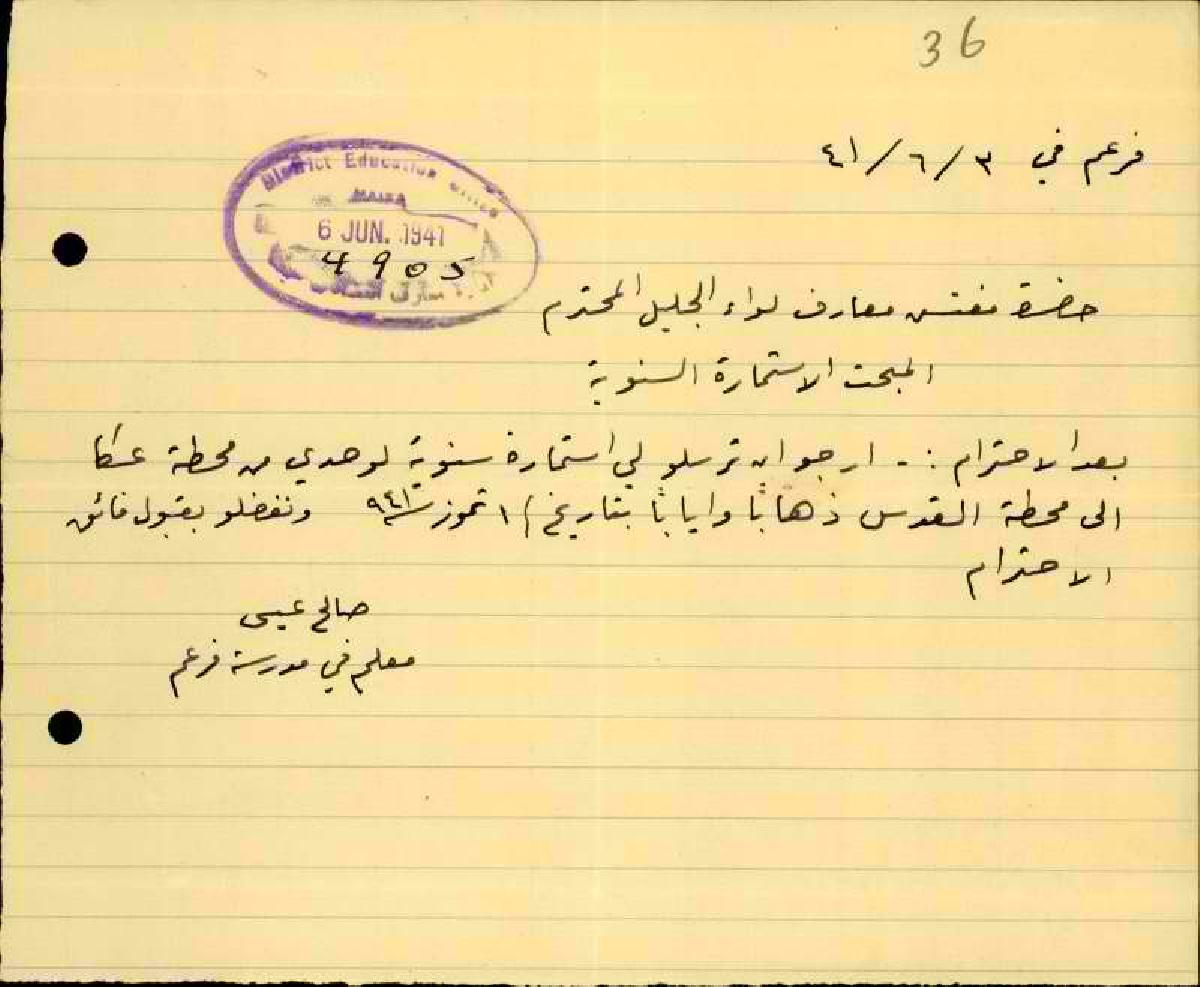 36
فرعم في ٣/٦/٤١
District Education Office
HAIFA
6 JUN. 1941
4905
حضرة مفتش معارف لواء الجليل المحترم
المبحث الاستمارة السنوية
بعد الاحترام :- ارجو ان ترسلو لي استمارة سنوية لوحدي من محطة عكا
الى محطة القدس ذهابًا وايابًا بتاريخ ١ تموز سنة ٩٤١ وتفضلو بقبول فائق
الاحترام
صالح عيسى
معلم في مدرسة فرعم